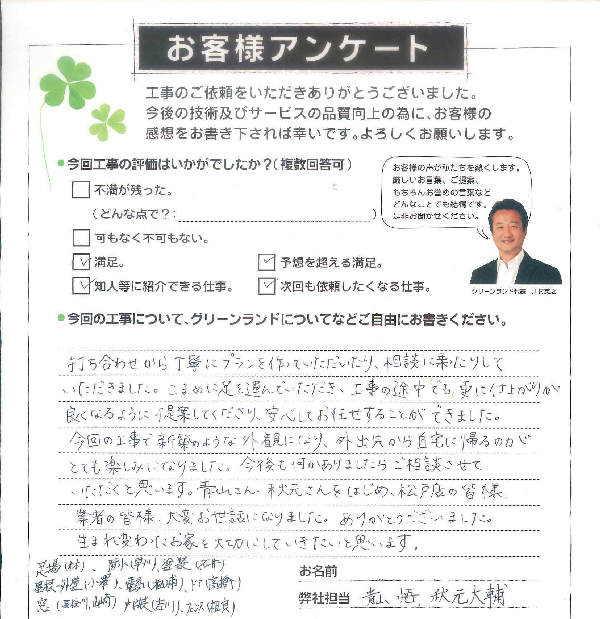 お客様アンケート
工事のご依頼をいただきありがとうございました。
今後の技術及びサービスの品質向上の為に、お客様の
感想をお書き下されば幸いです。よろしくお願いします。
今回工事の評価はいかがでしたか?(複数回答可)
不満が残った。
(どんな点で?: )
可もなく不可もない。
満足。
予想を超える満足。
知人等に紹介できる仕事。
次回も依頼したくなる仕事。
お客様の声が私たちを熱くします。
厳しいお言葉、ご提案、
もちろんお誉めの言葉など
どんなことでも結構です。
是非お聞かせください。
グリーンランド代表
今回の工事について、グリーンランドについてなどご自由にお書きください。
打ち合わせから丁寧にプランを作っていただいたり、相談に乗ったりして
いただきました。こまめに足を運んでいただき、工事の途中でも更に仕上がりが
良くなるように提案してくださり、安心してお任せすることができました。
今回の工事で新築のような外観になり、外出先から自宅に帰るのがとても
楽しみになりました。今後も何かありましたらご相談させて
いただくと思います。青山さん、秋元さんをはじめ、松戸店の皆様、
業者の皆様、大変お世話になりました。ありがとうございました。
生まれ変わったお家を大切にしていきたいと思います。
足場
塗装
電気
窓
お名前
弊社担当 青山、秋元大輔